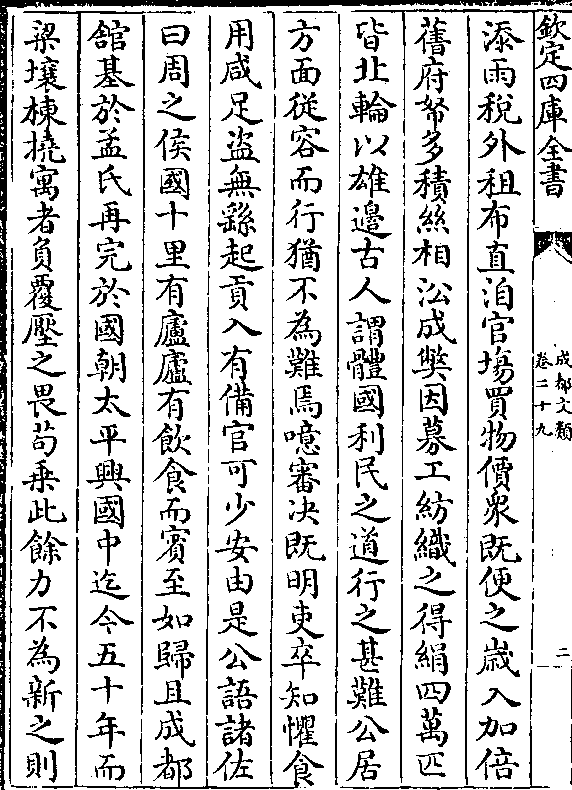 欽定四庫全書
成都文類
卷二十九
二
添兩税外租布直洎官塲買物價衆既便之歳入加倍
舊府帑多積絲相沿成弊因募工紡織之得絹四萬匹
皆北輪以雄邊古人謂體國利民之道行之甚難公居
方面從容而行猶不為難焉噫審决既明吏卒知懼食
用咸足盗無繇起貢入有備官可少安由是公語諸佐
曰周之侯國十里有廬廬有飲食而賓至如歸且成都
舘基於孟氏再完於國朝太平興國中迄今五十年而
梁壊棟撓寓者負覆壓之畏苟乗此餘力不為新之則